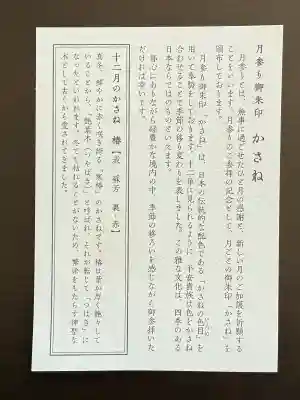 月参り御朱印 かさね
月参りとは、無事に過ごせたひと月の感謝と、新しい月のご加護を祈願する
ことをいいます。月参りのご参拝の記念として、月ごとの御朱印「かさね」を
頒布しております。
月参り御朱印「かさね」は、日本の伝統的な配色である「かさねの色目」を
用いて奉製をしております。十二単に見られるように、平安貴族は色をかさね
合わせることで季節の移り変わりを表しました。この雅な文化は、四季のある
日本ならではのものといえます。
都心にありながら緑豊かな境内の中、季節の移ろいを感じながら御参拝いた
だければ幸いです。
十二月のかさね 椿【表 蘇芳 裏 赤】
真冬、鮮やかに赤く咲き誇る「寒椿」のかさねです。椿は葉が厚く艶々して
いることから、「艶葉木（つやばき）」と呼ばれ、それが転じて「つばき」に
なったといわれます。冬でも枯れることがないため、繁栄をもたらす神聖な
木として古くから愛されてきました。